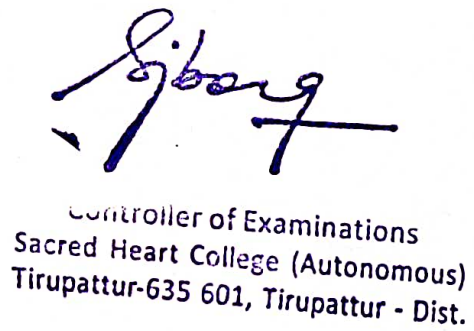 Controller of Examinations
Sacred Heart College (Autonomous)
Tirupattur-635 601, Tirupattur - Dist.